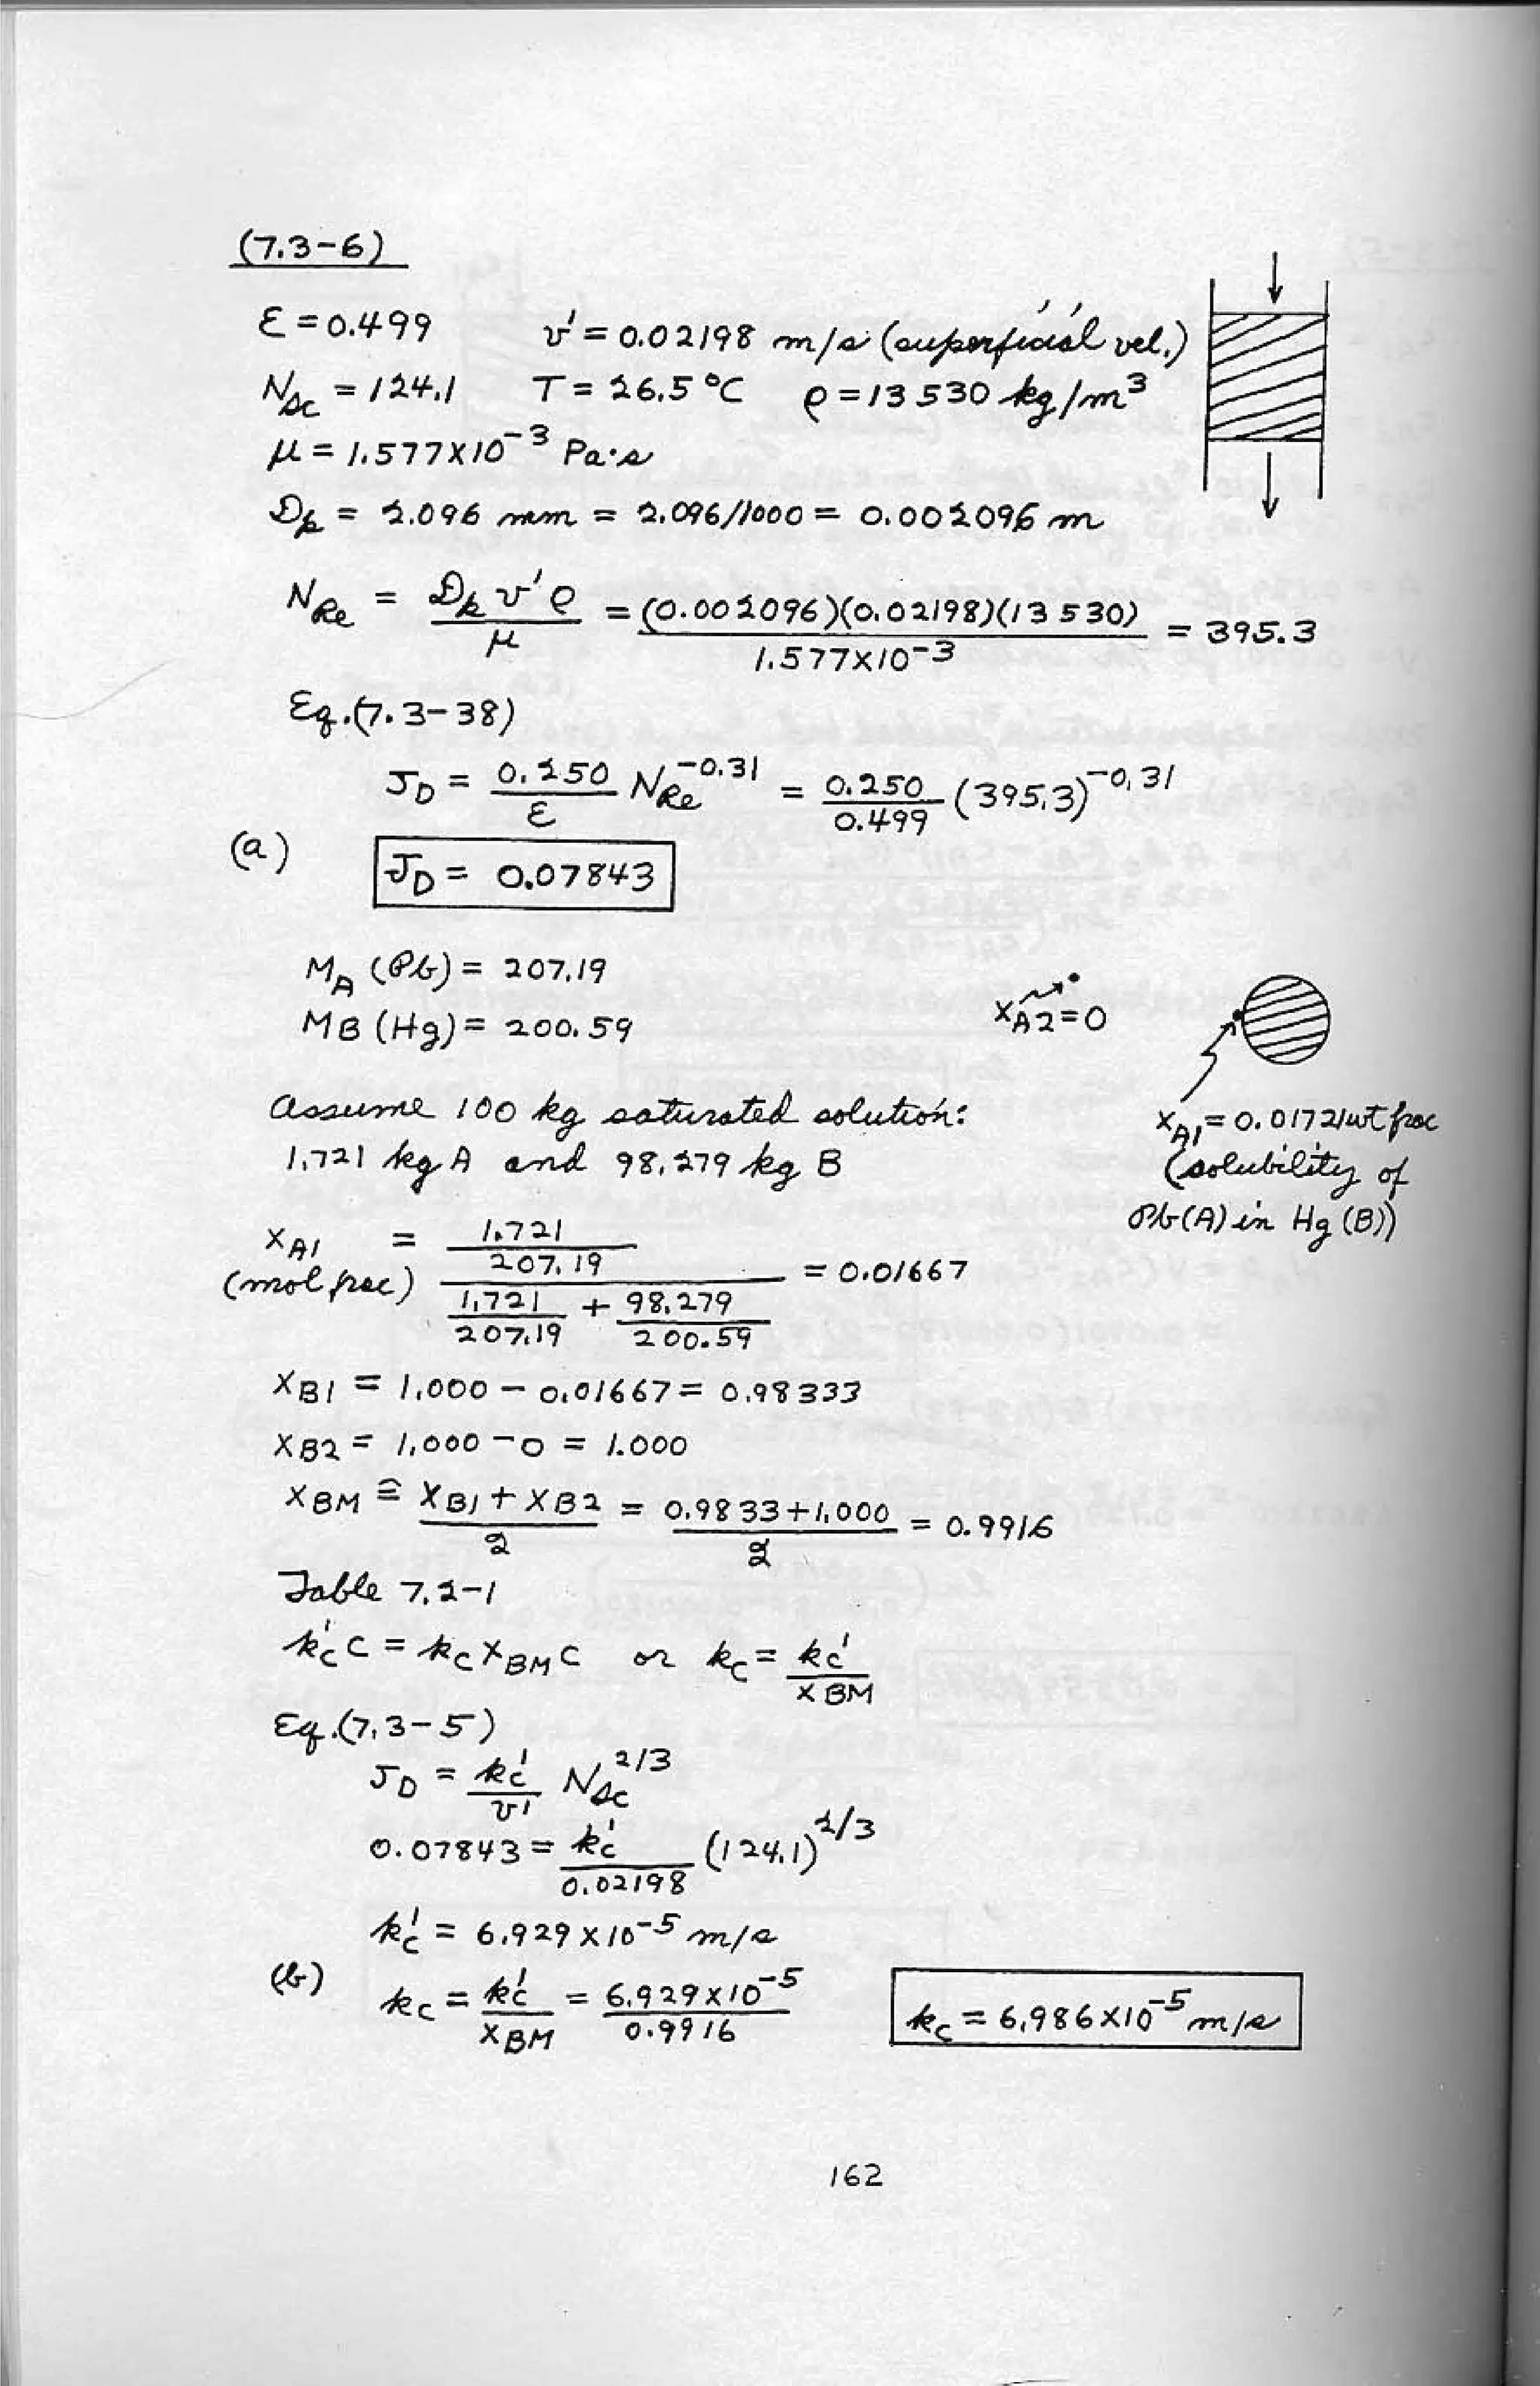 (7.3-6)
ε = 0.499 v' = 0.02198 m/s (superficial vel.)
N_Sc = 124.1 T = 26.5 °C ρ = 13 530 kg/m³
μ = 1.577×10⁻³ Pa·s
D_p = 2.096 mm = 2.096/1000 = 0.002096 m
N_Re = D_p v' ρ / μ = (0.002096)(0.02198)(13 530) / 1.577×10⁻³ = 395.3
Eq.(7.3-38)
J_D = 0.250/ε N_Re^-0.31 = 0.250/0.499 (395.3)^-0.31
(a) J_D = 0.07843
M_A (Pb) = 207.19
MB (Hg) = 200.59
x_A2 = 0
Assume 100 kg saturated solution:
1.721 kg A and 98.279 kg B
x_A1 = 0.01721 wt frac
(solubility of
Pb(A) in Hg (B))
x_A1 (mol frac) = (1.721/207.19) / (1.721/207.19 + 98.279/200.59) = 0.01667
x_B1 = 1.000 - 0.01667 = 0.98333
x_B2 = 1.000 - 0 = 1.000
x_BM ≅ (x_B1 + x_B2)/2 = (0.9833+1.000)/2 = 0.9916
Table 7.2-1
k'_c c = k_c x_BM c or k_c = k_c'/x_BM
Eq.(7.3-5)
J_D = k_c'/v' N_Sc^2/3
0.07843 = k_c'/0.02198 (124.1)^2/3
k_c' = 6.929×10⁻⁵ m/s
(b) k_c = k_c'/x_BM = 6.929×10⁻⁵/0.9916 k_c = 6.986×10⁻⁵ m/s
162